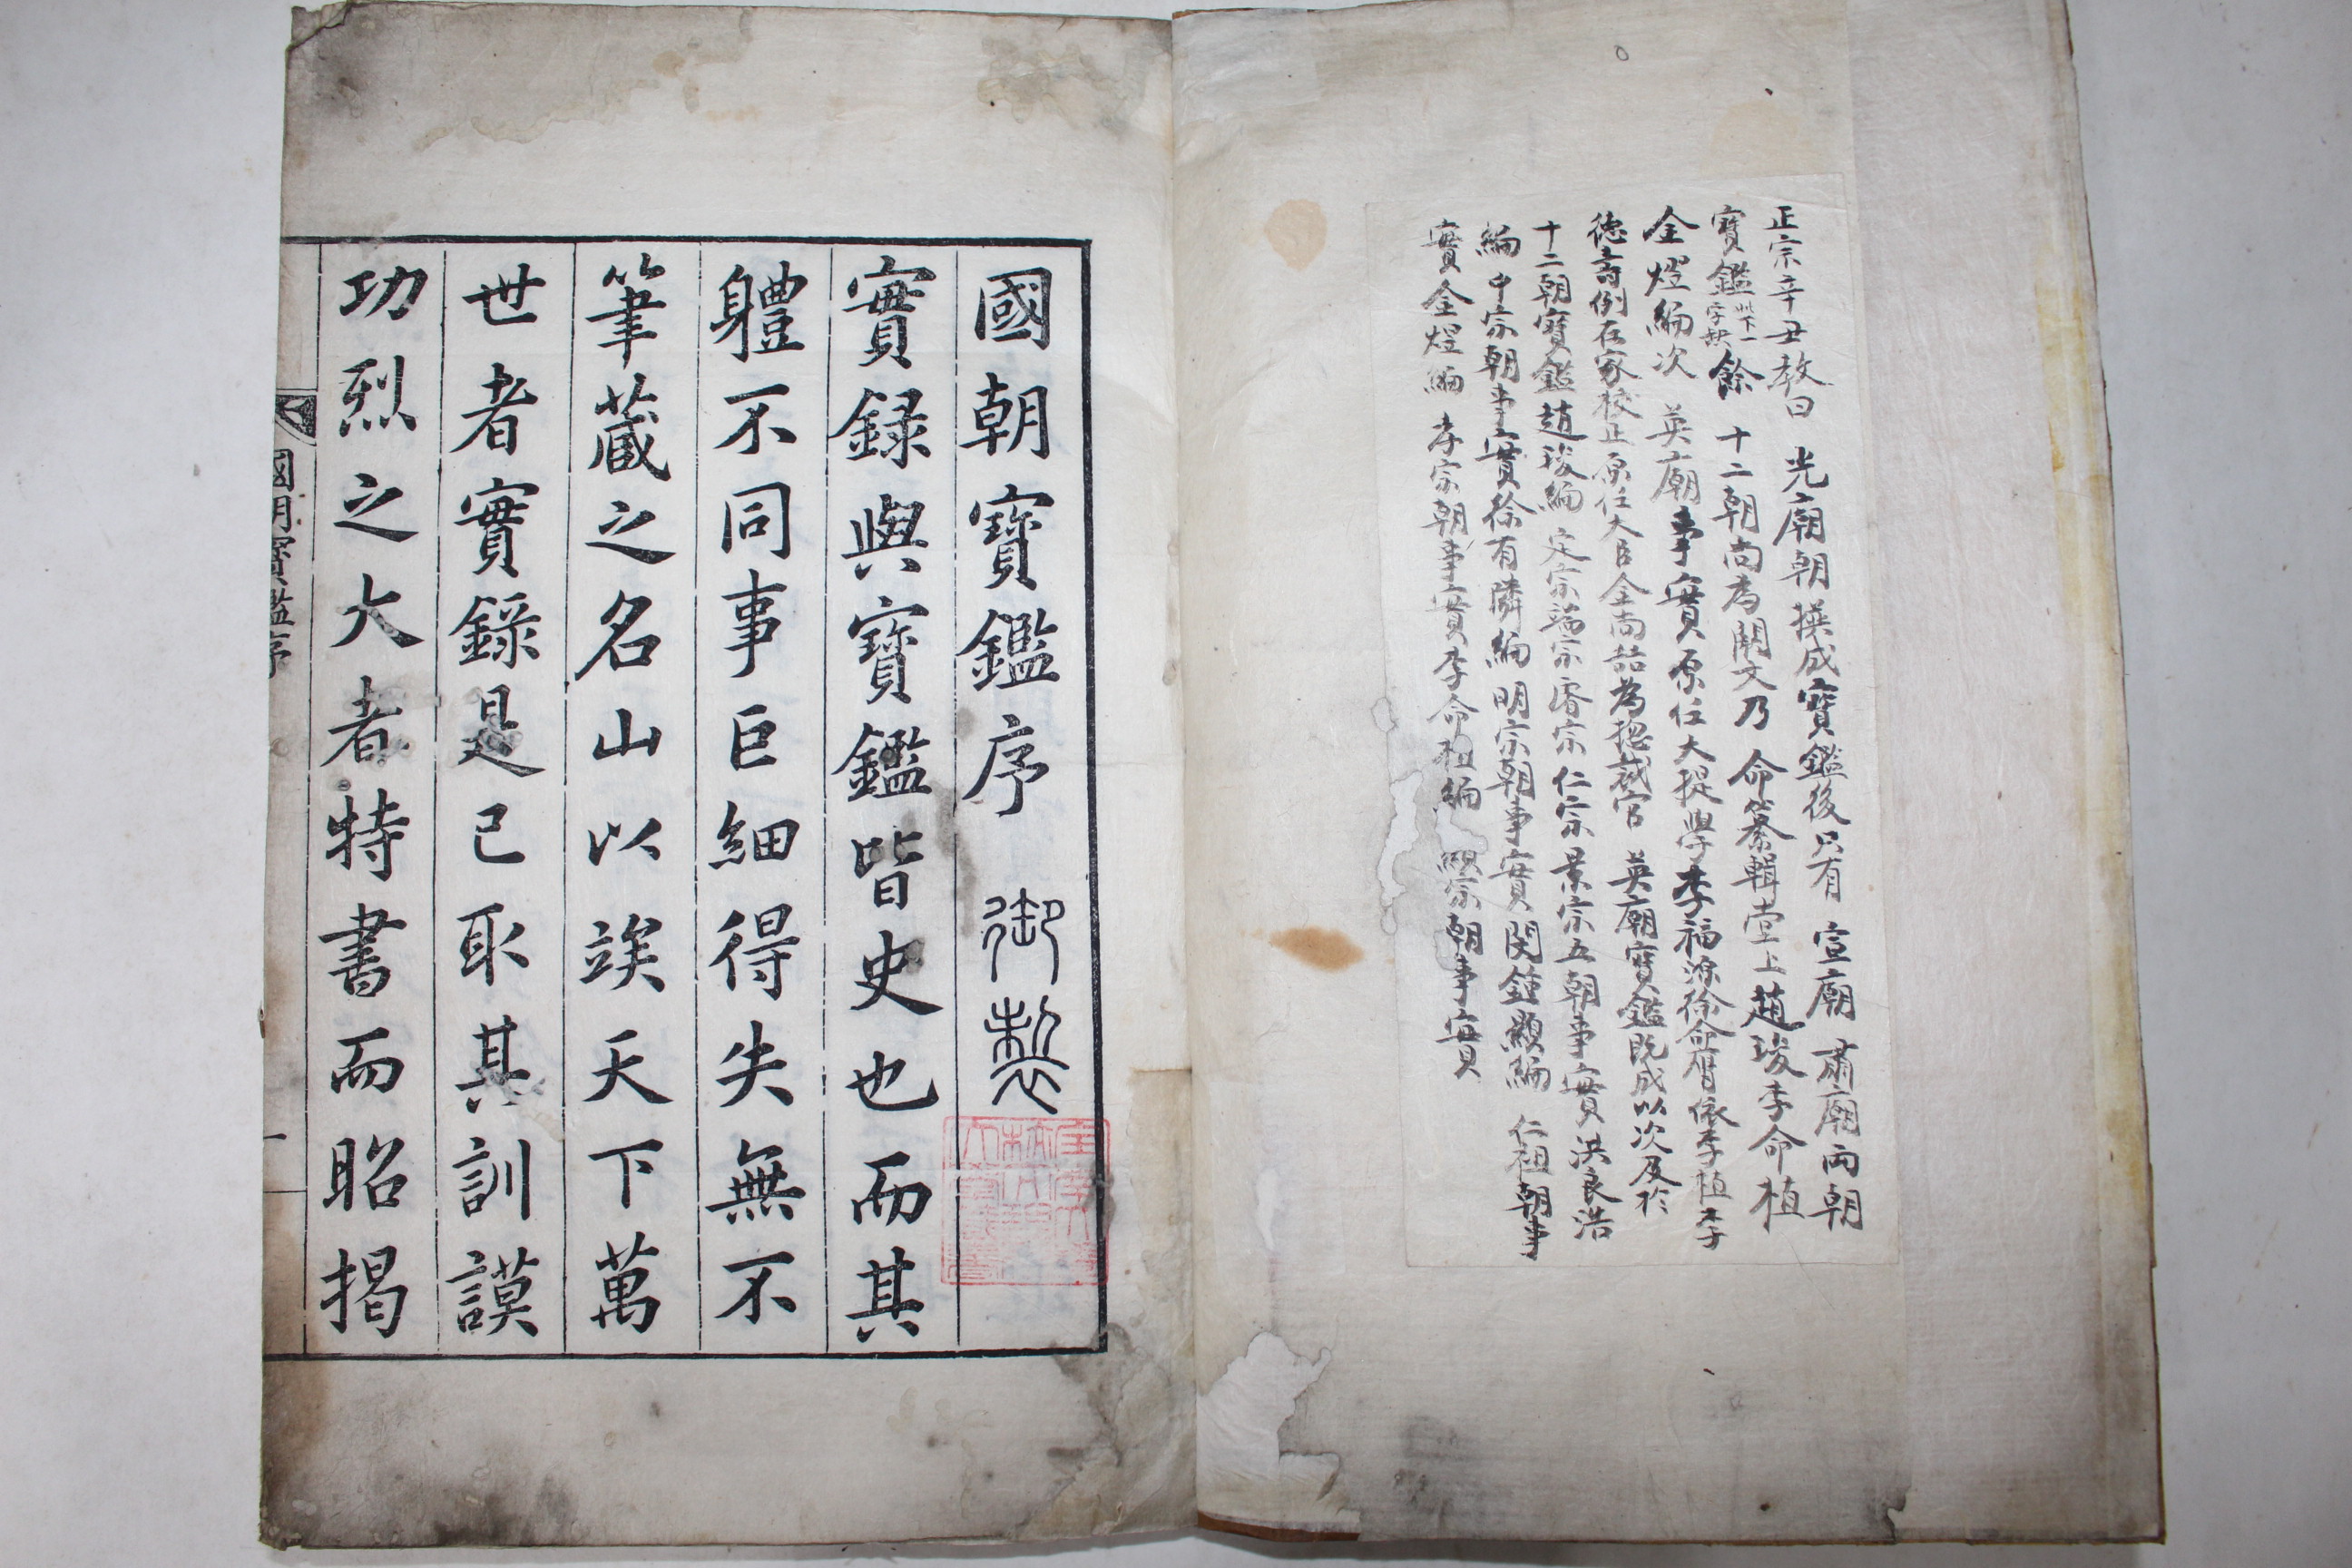 正宗辛丑教曰 光廟朝撰成寶鑑後只有 宣廟 肅廟兩朝
寶鑑此下一字缺餘 十二朝尚為闕文乃 命纂輯堂上趙㻐李命植
金熤編次 英廟事實原任大提學李福源徐命膺依李植李
德壽例在家校正原任大臣金尚喆為摠裁官 英廟寶鑑既成以次及於
十二朝寶鑑趙㻐編 定宗端宗睿宗仁宗景宗五朝事實洪良浩
編中宗朝事實徐有隣編 明宗朝事實閔鍾顯編 仁祖朝事
實金熤編 孝宗朝事實李命植編 顯宗朝事實
國朝寶鑑序 御製
實錄與寶鑑皆史也而其
軆不同事巨細得失無不
筆蔵之名山以竢天下萬
世者實錄是已取其訓謨
功烈之大者特書而昭揭
國朝寶鑑序
一